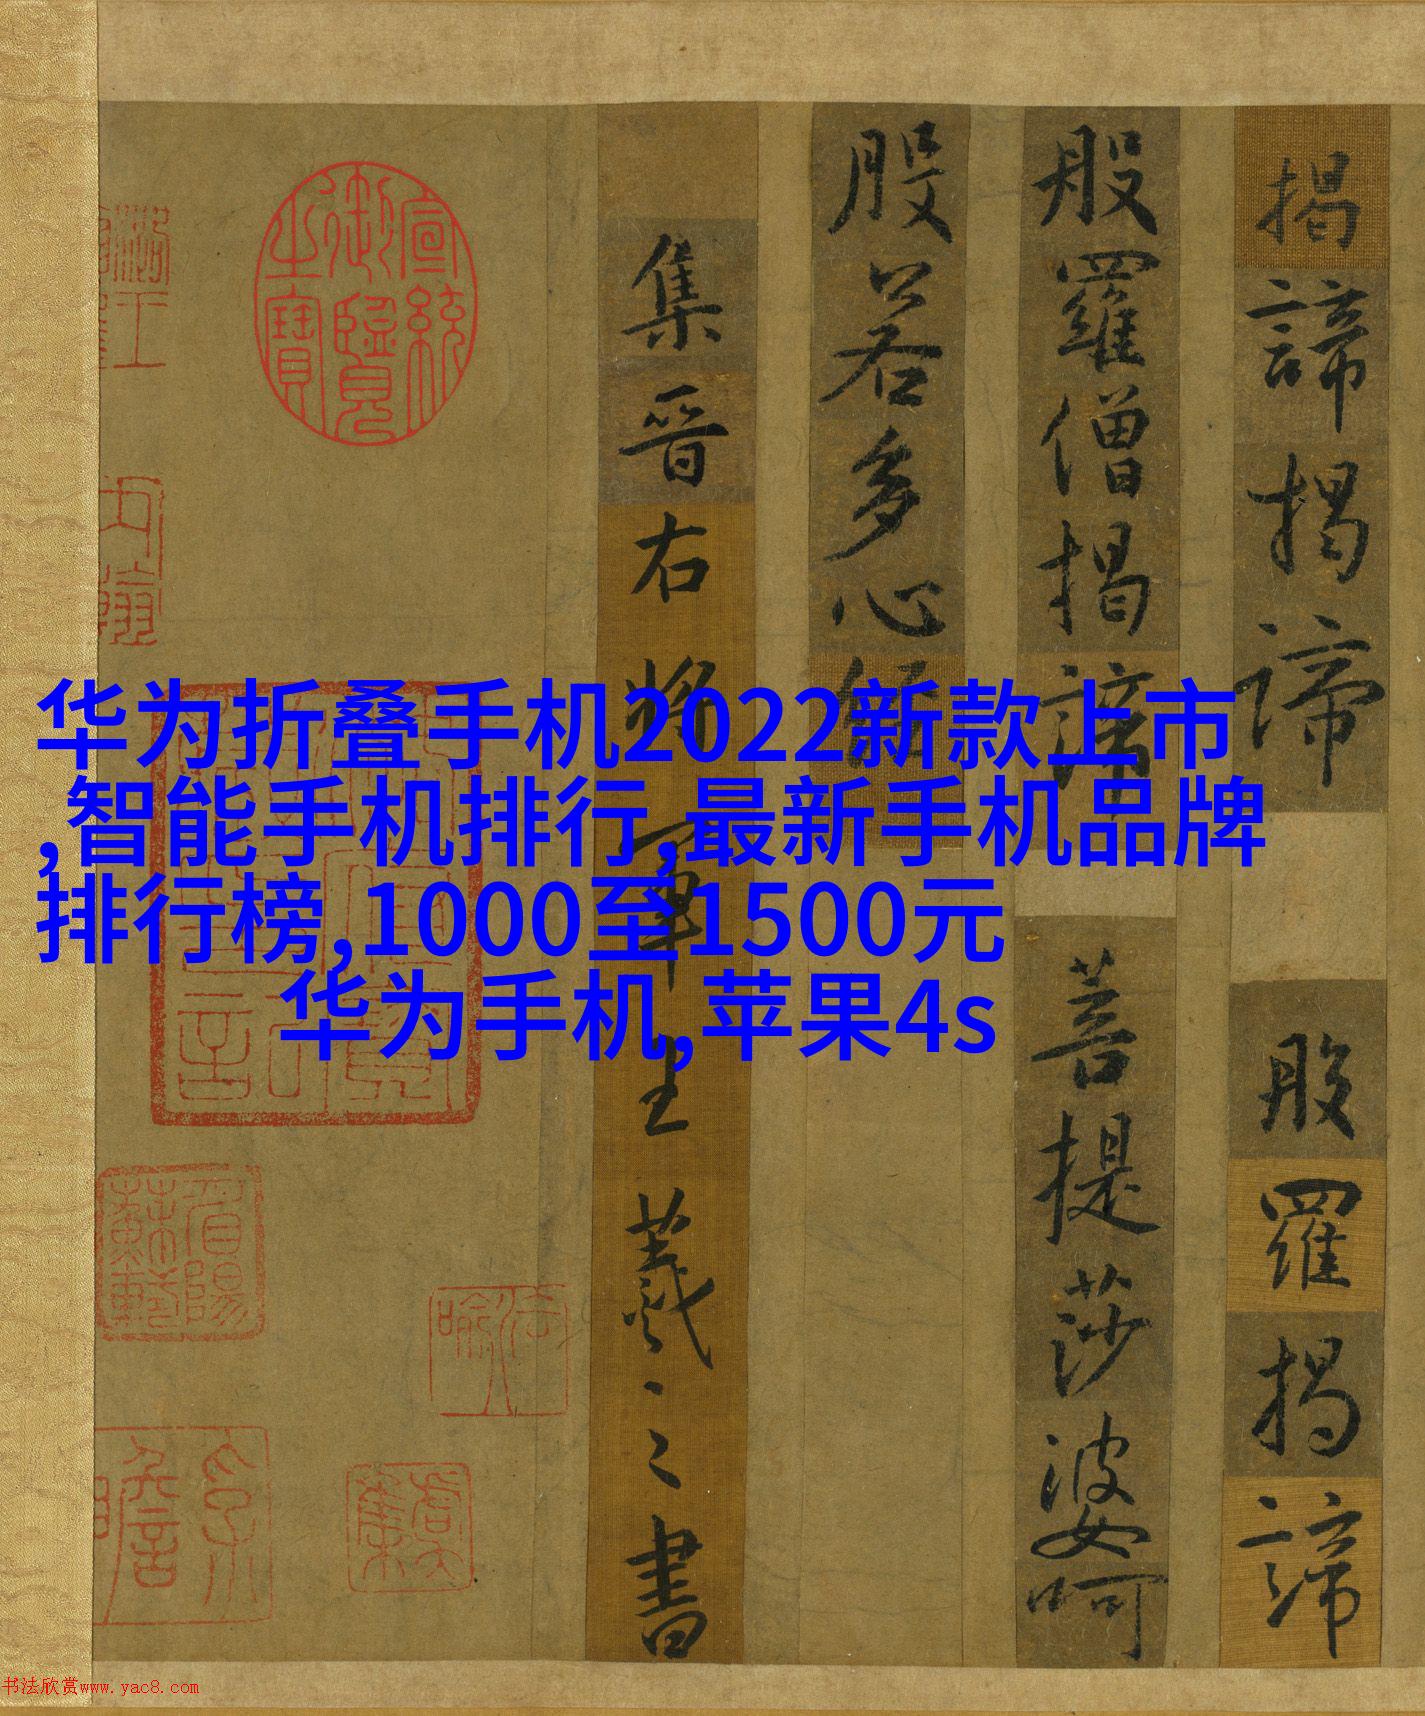 揭諦揭諦 般羅揭諦
般羅僧揭諦 菩提莎婆呵
般若多心經
集晉右將軍王羲之書
宣統御覽之寶
华为折叠手机2022新款上市
,智能手机排行,最新手机品牌
排行榜,1000至1500元
华为手机,苹果4s
书法欣赏www.yac8.com